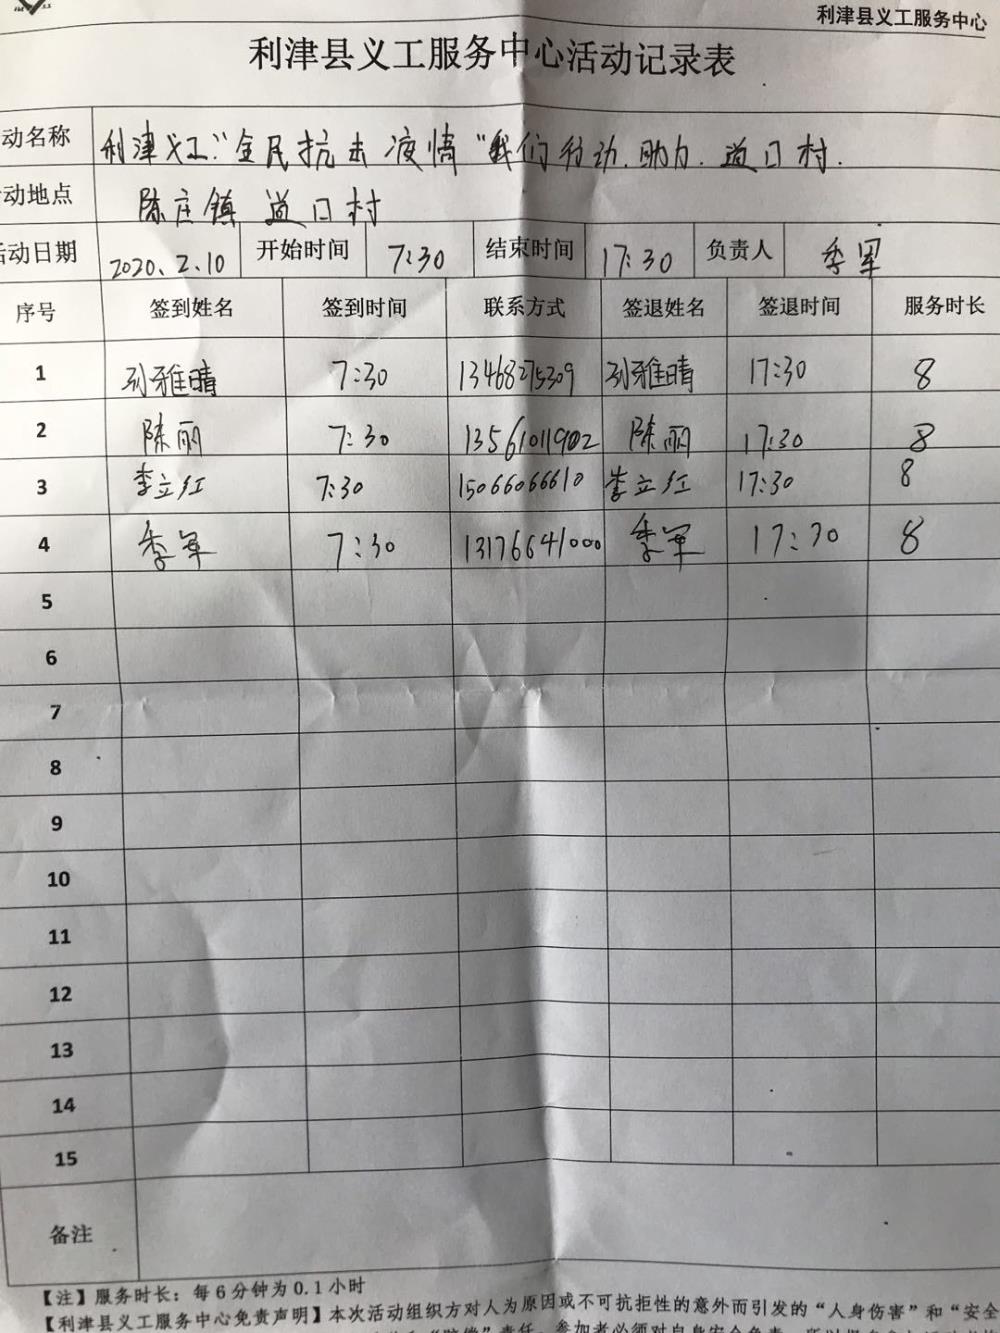 利津县义工服务中心
利津县义工服务中心活动记录表
动名称 利津义工"全民抗击疫情"我们行动.助力.道口村.
动地点 陈庄镇 道口村
活动日期 2020.2.10 开始时间 7:30 结束时间 17:30 负责人 季军
序号 签到姓名 签到时间 联系方式 签退姓名 签退时间 服务时长
1 孙雅晴 7:30 13468275309 孙雅晴 17:30 8
2 陈丽 7:30 13561011902 陈丽 17:30 8
3 李立红 7:30 15066066610 李立红 17:30 8
4 季军 7:30 13176641000 季军 17:30 8
5
6
7
8
9
10
11
12
13
14
15
备注
【注】服务时长：每6分钟为0.1小时
【利津县义工服务中心免责声明】本次活动组织方对人为原因或不可抗拒性的意外而引发的“人身伤害”和“安全